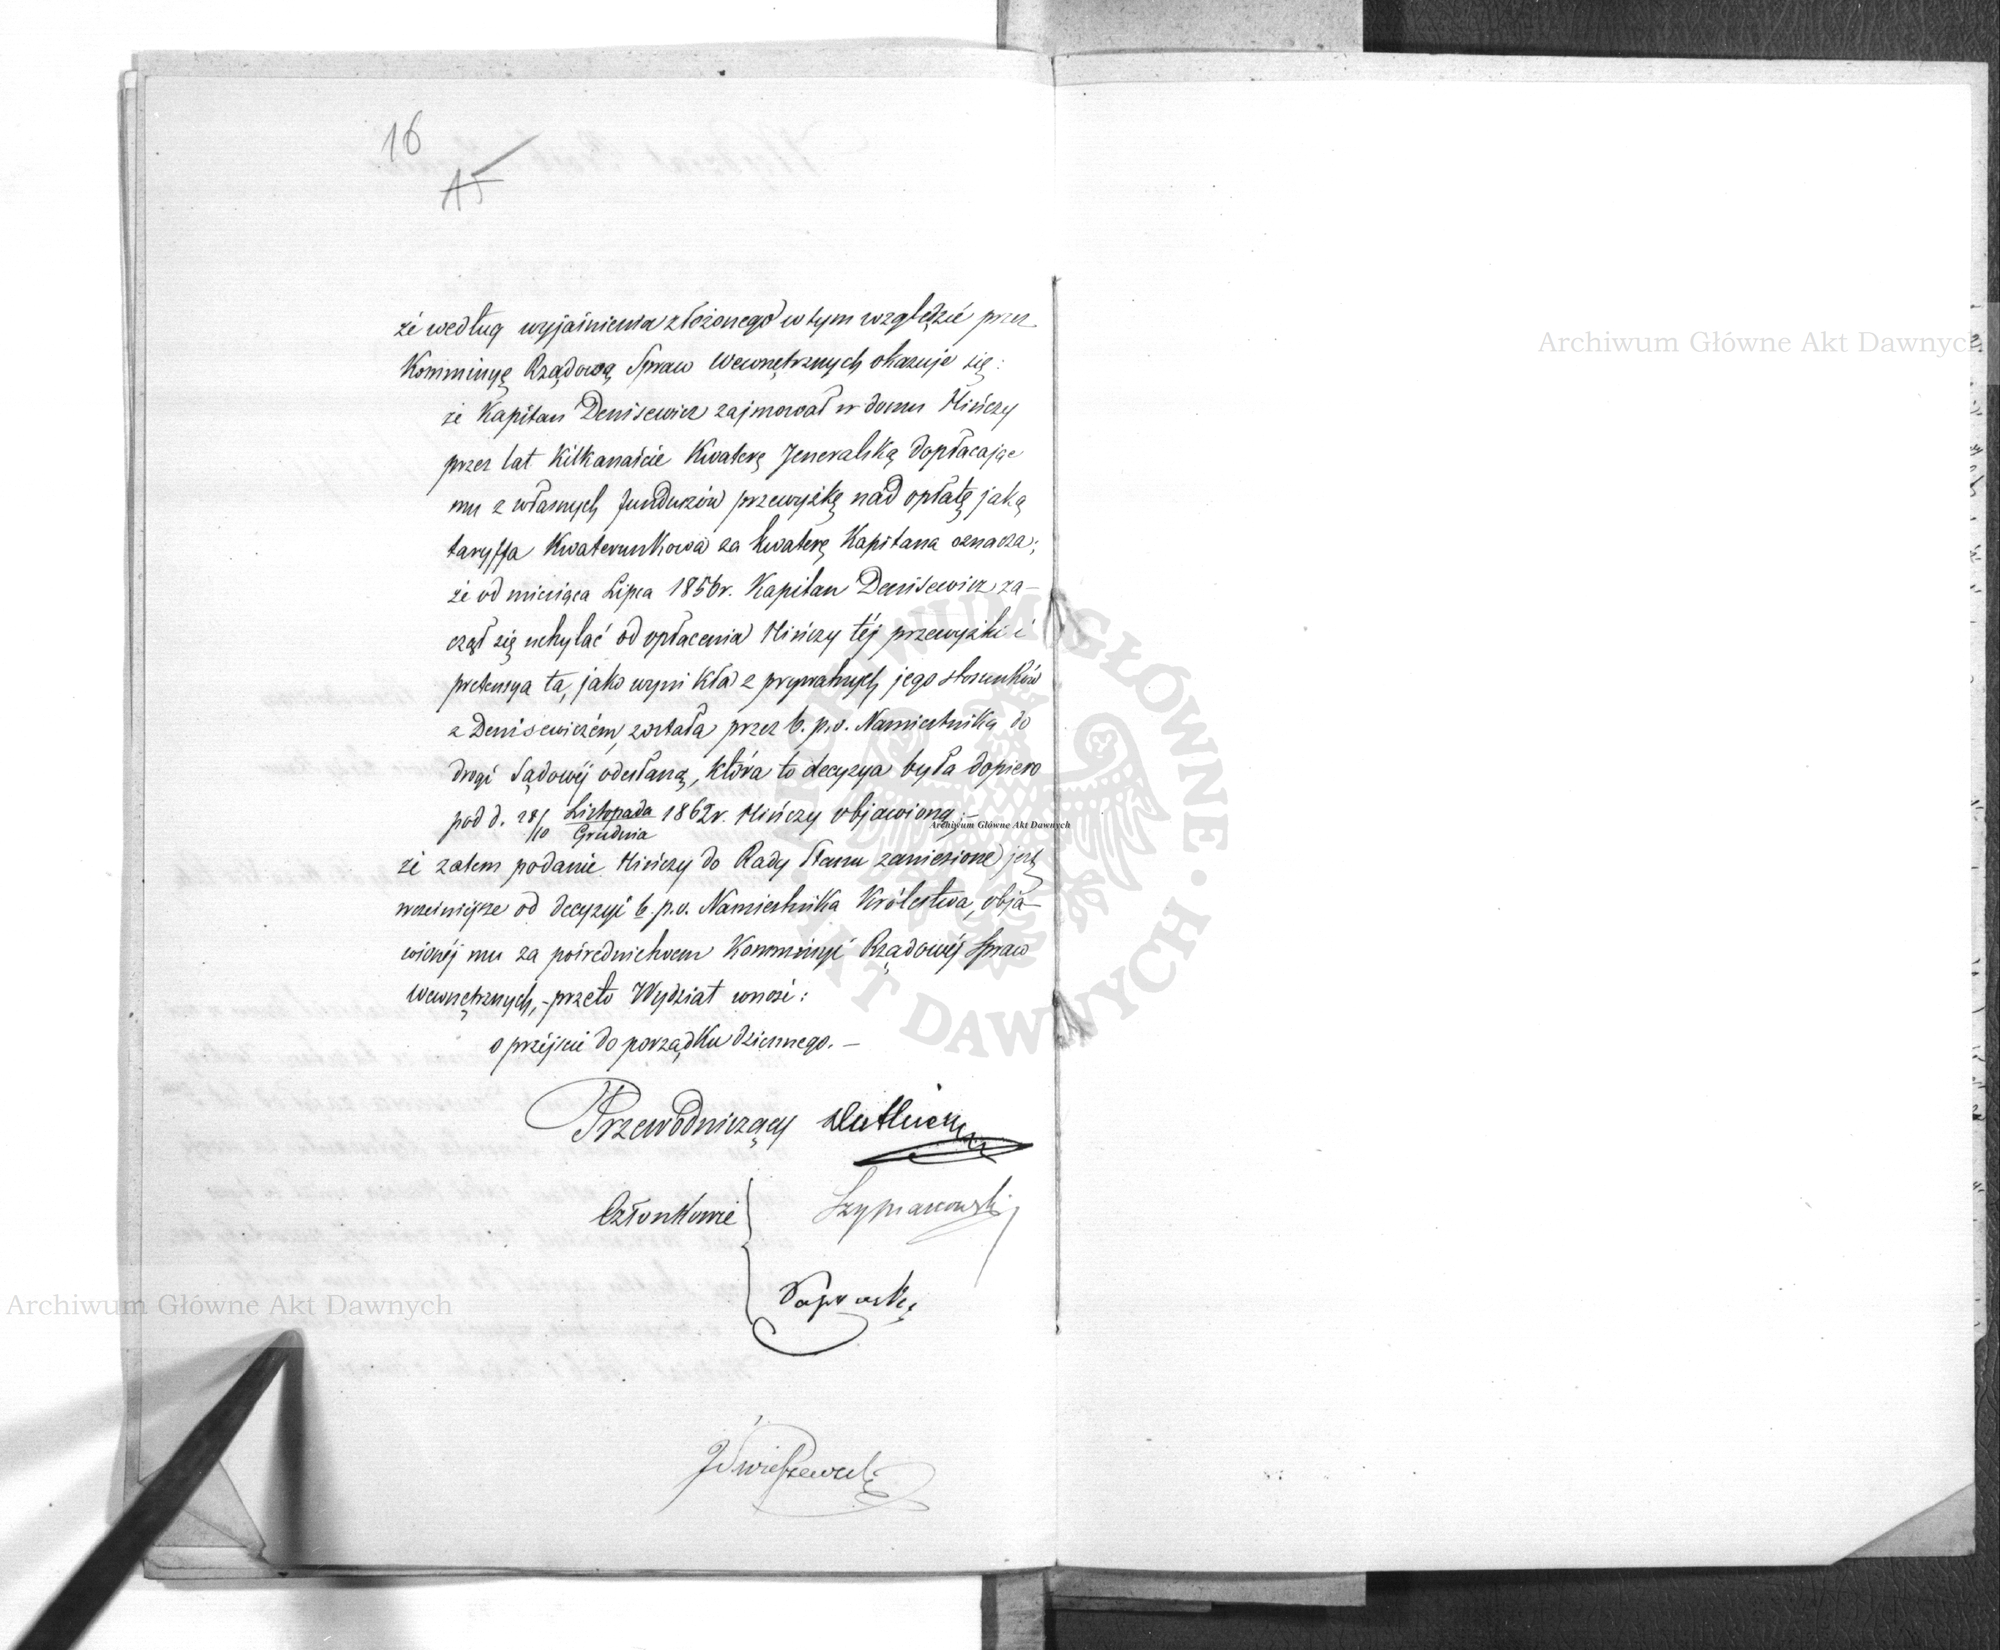 16
15
że według wyjaśnienia złożonego w tym względzie przez
Kommissyę Rządową Spraw Wewnętrznych okazuje się:
że Kapitan Denisewicz zajmował w domu Hińczy
przez lat kilkanaście Kwaterę Jeneralską dopłacając
mu z własnych funduszów przewyżkę nad opłatę jaką
taryffa Kwaterunkowa za kwaterę Kapitana oznacza;
że od miesiąca Lipca 1856 r. Kapitan Denisewicz za-
czął się uchylać od opłacenia Hińczy téj przewyżki i
pretensya ta, jako wynikła z prywatnych jego stosunków
z Denisewiczem, została przez b. p.o. Namiestnika do
drogi Sądowéj odesłaną, która to decyzya była dopiero
pod d. 28/10 Listopada/Grudnia 1862 r. Hińczy objawioną;-
że zatem podanie Hińczy do Rady Stanu zaniesione jest
wcześniejsze od decyzyi b. p.o. Namiestnika Królestwa, obja-
wionéj mu za pośrednictwem Kommissyi Rządowéj Spraw
Wewnętrznych, - przeto Wydział wnosi:
o przéjście do porządku dziennego. -
Przewodniczący
Członkowie
Szymanowski
Archiwum Główne Akt Dawnych
Archiwum Główne Akt Dawnych
Archiwum Główne Akt Dawnych
ARCHIWUM GŁÓWNE AKT DAWNYCH